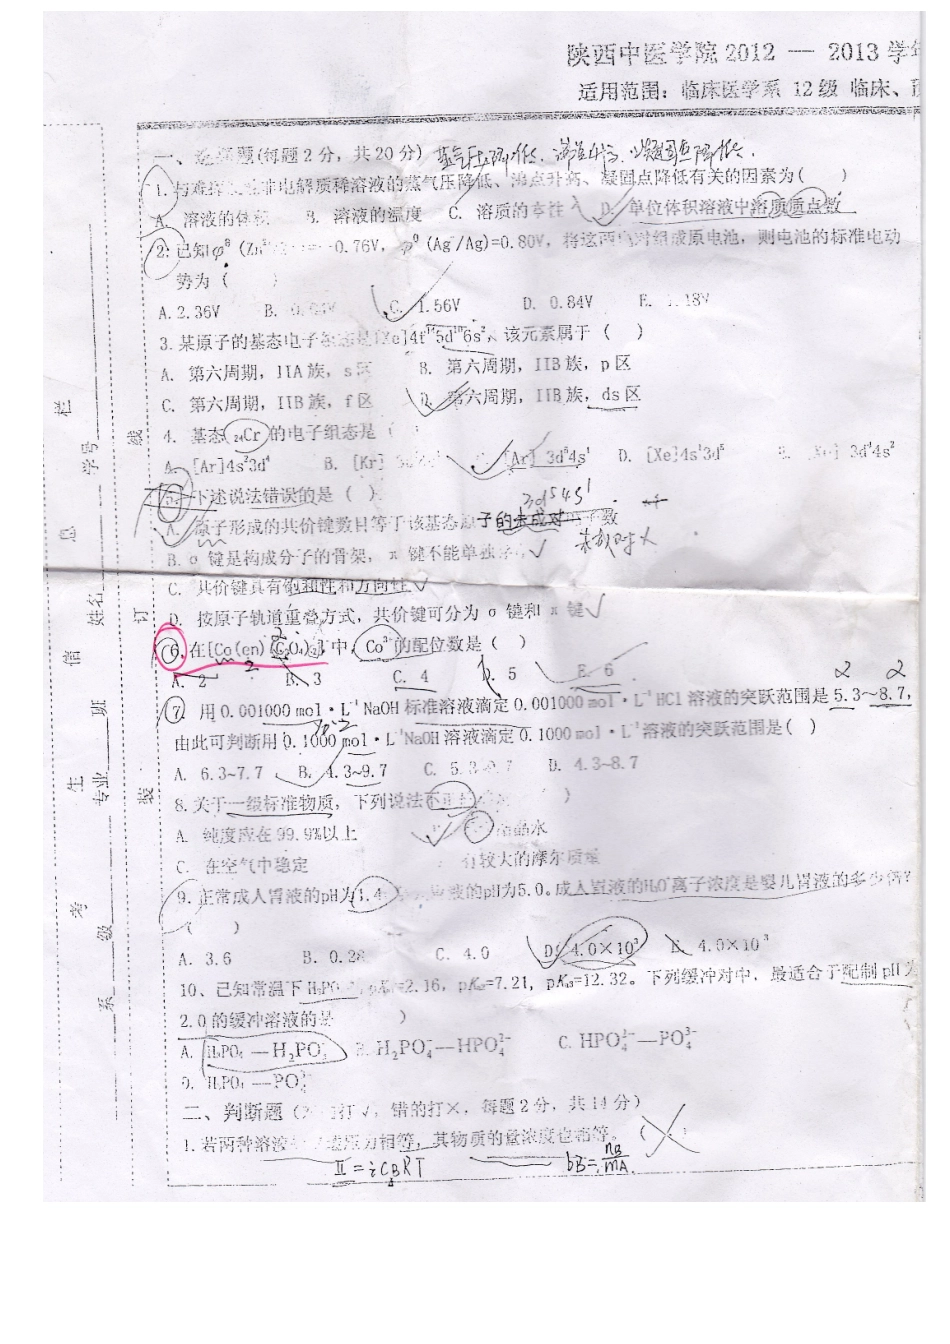 陕西中医学院 2012 — 2013 学年
适用范围：临床医学系 12级 临床、
一、选择题(每题2分，共20分) 蒸气压降低、沸点升高、凝固点降低、
1.与难挥发性非电解质稀溶液的蒸气压降低、沸点升高、凝固点降低有关的因素为( )
A. 溶液的体积 B. 溶液的温度 C. 溶质的本性 D. 单位体积溶液中溶质质点数
2.已知φθ(Zn =-0.76V, φθ(Ag+/Ag)=0.80V, 将这两电对组成原电池，则电池的标准电动
势为 ( )
A. 2.36V B. C. 1.56V D. 0.84V E. 1.18V
3.某原子的基态电子组态是[Xe]4f¹⁴5d¹⁰6s²，该元素属于 ( )
A. 第六周期，IIA族，s区 B. 第六周期，IIB族，p区
C. 第六周期，IIB族，f区 D. 第六周期，IIB族，ds区
4. 基态₂₄Cr的电子组态是 (
A. [Ar]4s²3d⁴ B. [Kr] [Ar] 3d⁵4s¹ D. [Xe]4s¹3d⁵ 3d⁴4s²
5. 下述说法错误的是 ( ) 3d⁵4s¹
A. 原子形成的共价键数目等于该基态原子的未成对电子数
B. σ 键是构成分子的骨架，π 键不能单独 √
C. 共价键具有饱和性和方向性 √
D. 按原子轨道重叠方式，共价键可分为 σ 键和 π 键 √
6.在[Co(en)(C₂O₄)₂]⁻中，Co³⁺的配位数是 ( )
A. 2 B. 3 C. 4 D. 5 E. 6
7. 用 0.001000 mol·L⁻¹ NaOH 标准溶液滴定 0.001000 mol·L⁻¹ HCl 溶液的突跃范围是 5.3~8.7,
由此可判断用 0.1000 mol·L⁻¹NaOH 溶液滴定 0.1000 mol·L⁻¹溶液的突跃范围是( )
A. 6.3~7.7 B. 4.3~9.7 C. 5.3 D. 4.3~8.7
8.关于一级标准物质，下列说法不正确 )
A. 纯度应在99.9%以上 结晶水
C. 在空气中稳定 有较大的摩尔质量
9.正常成人胃液的pH为1.4 液的pH为5.0。成人胃液的H₃O⁺离子浓度是婴儿胃液的多少倍?
( )
A. 3.6 B. 0.28 C. 4.0 D. 4.0×10³ E. 4.0×10⁻³
10、已知常温下 H₃PO₄ =2.16, pKa2=7.21, pKa3=12.32。下列缓冲对中，最适合于配制pH为
2.0 的缓冲溶液的是 )
A. H₃PO₄ — H₂PO₄⁻ B. H₂PO₄⁻—HPO₄²⁻ C. HPO₄²⁻—PO₄³⁻
D. H₃PO₄ —PO₄³⁻
二、判断题 ( 打√，错的打×，每题2分，共14分)
1.若两种溶液 渗透压力相等，其物质的量浓度也相等。 (×)
Π = iCBRT bB= nB/mA
栏
学号
线
息
姓名
订
信
班
生
专业
装
考
级
系